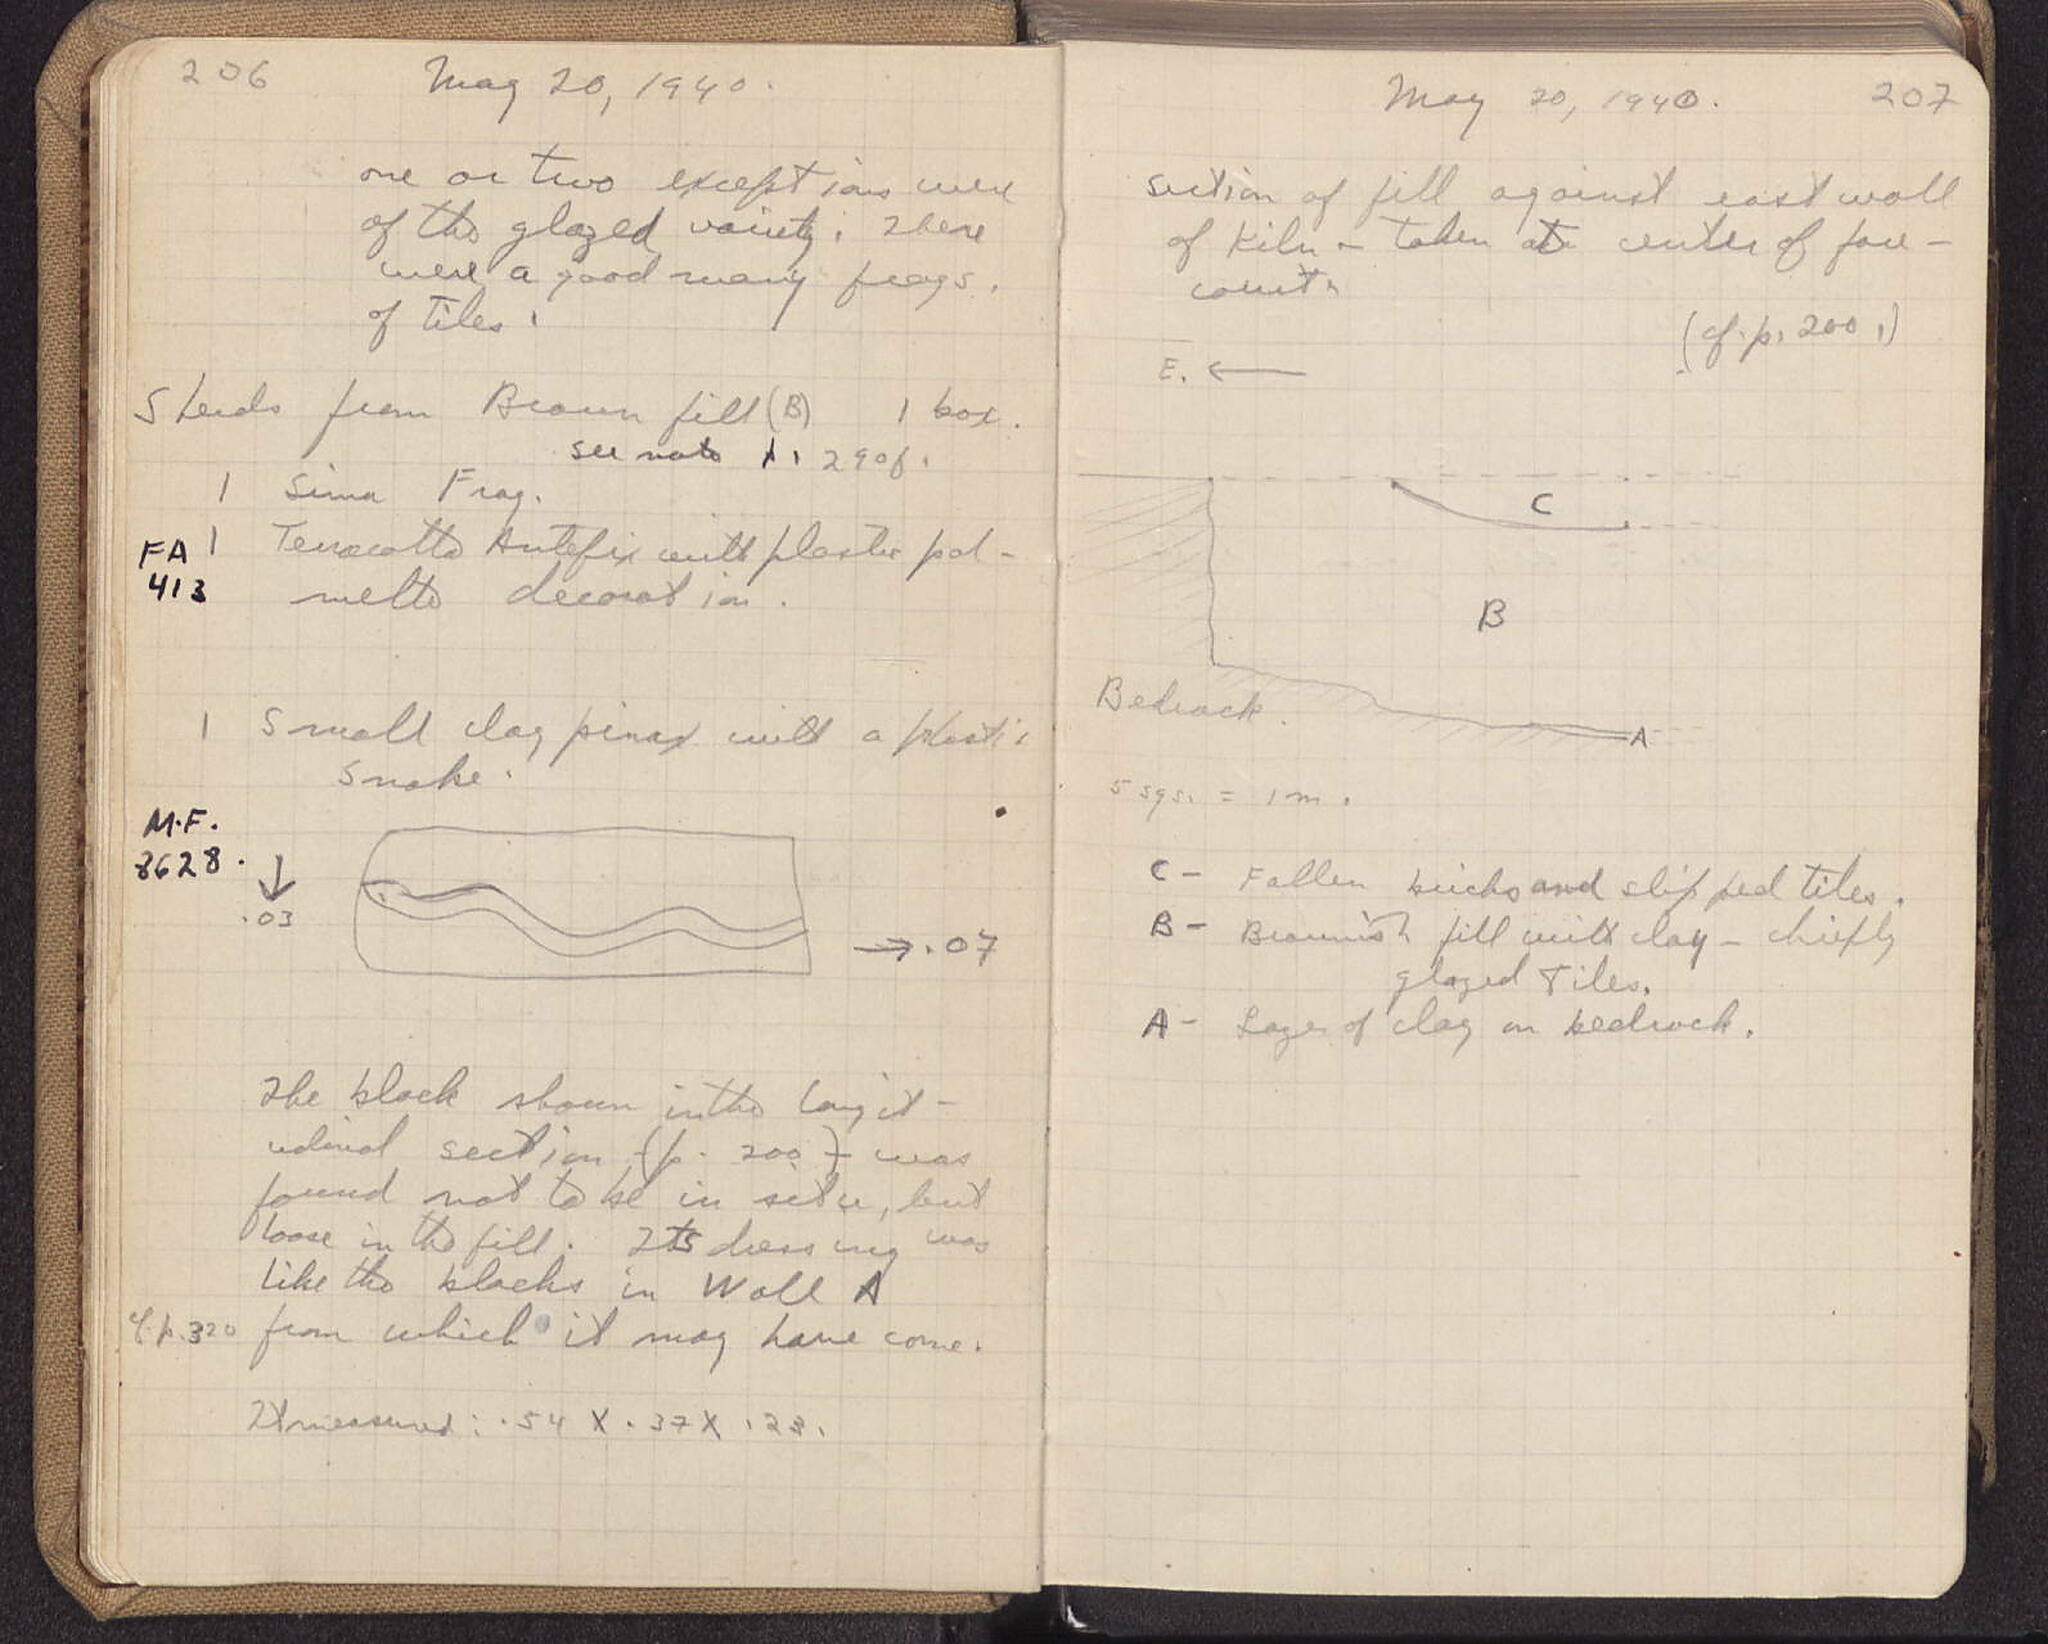 206 May 20, 1940.
one or two exceptions were
of the glazed variety. There
were a good many frags.
of tiles.
Sherds from Brown fill (B) 1 box.
see note p. 290f.
1 Sima Frag.
FA 1 Terracotta Antefix with plastic pal-
413 metto decoration.
1 Small clay pinax with a plastic
snake.
M.F.
8628.
.03
→ .07
The block shown in the longit-
udinal section (p. 200) was
found not to be in situ, but
loose in the fill. Its dressing was
like the blocks in Wall A
cf. p. 320 from which it may have come.
It measured: .54 X .37 X .28.
May 20, 1940. 207
Section of fill against east wall
of Kiln - taken at center of fore-
court.
(cf. p. 200.)
E. ←
C
B
Bedrock.
A
5 sqs. = 1 m.
C - Fallen bricks and slipped tiles.
B - Brownish fill with clay - chiefly
glazed tiles.
A - Layer of clay on bedrock.